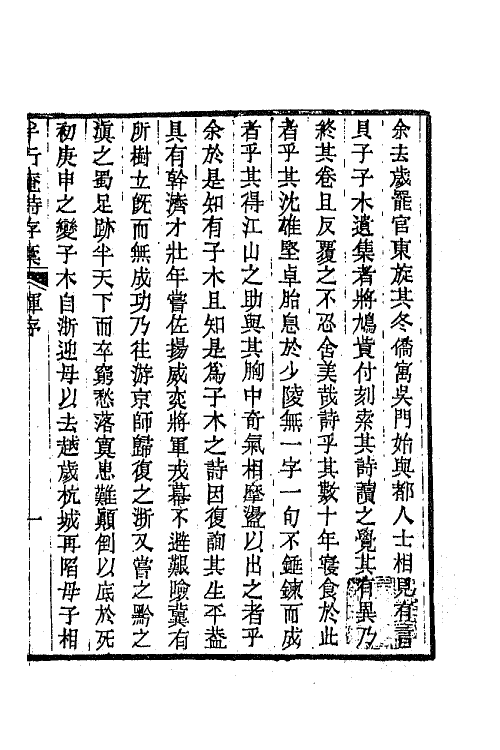 余去歲罷官東旋其冬僑寓吳門始與都人士相見有言
貝子子木遺集者將鳩貲付刻索其詩讀之覺其有異乃
終其卷且反覆之不忍舍美哉詩乎其數十年寢食於此
者乎其沈雄堅卓胎息於少陵無一字一句不錘鍊而成
者乎其得江山之助與其胸中奇氣相摩盪以出之者乎
余於是知有子木且知是爲子木之詩因復詢其生平蓋
具有幹濟才壯年嘗佐揚威奕將軍戎幕不避艱險冀有
所樹立旣而無成功乃往游京師歸復之浙又嘗之黔之
滇之蜀足跡半天下而卒窮愁落寞患難顚倒以底於死
初庚申之變子木自浙迎母以去越歲杭城再陷母子相
半行庵詩存稾 序 一